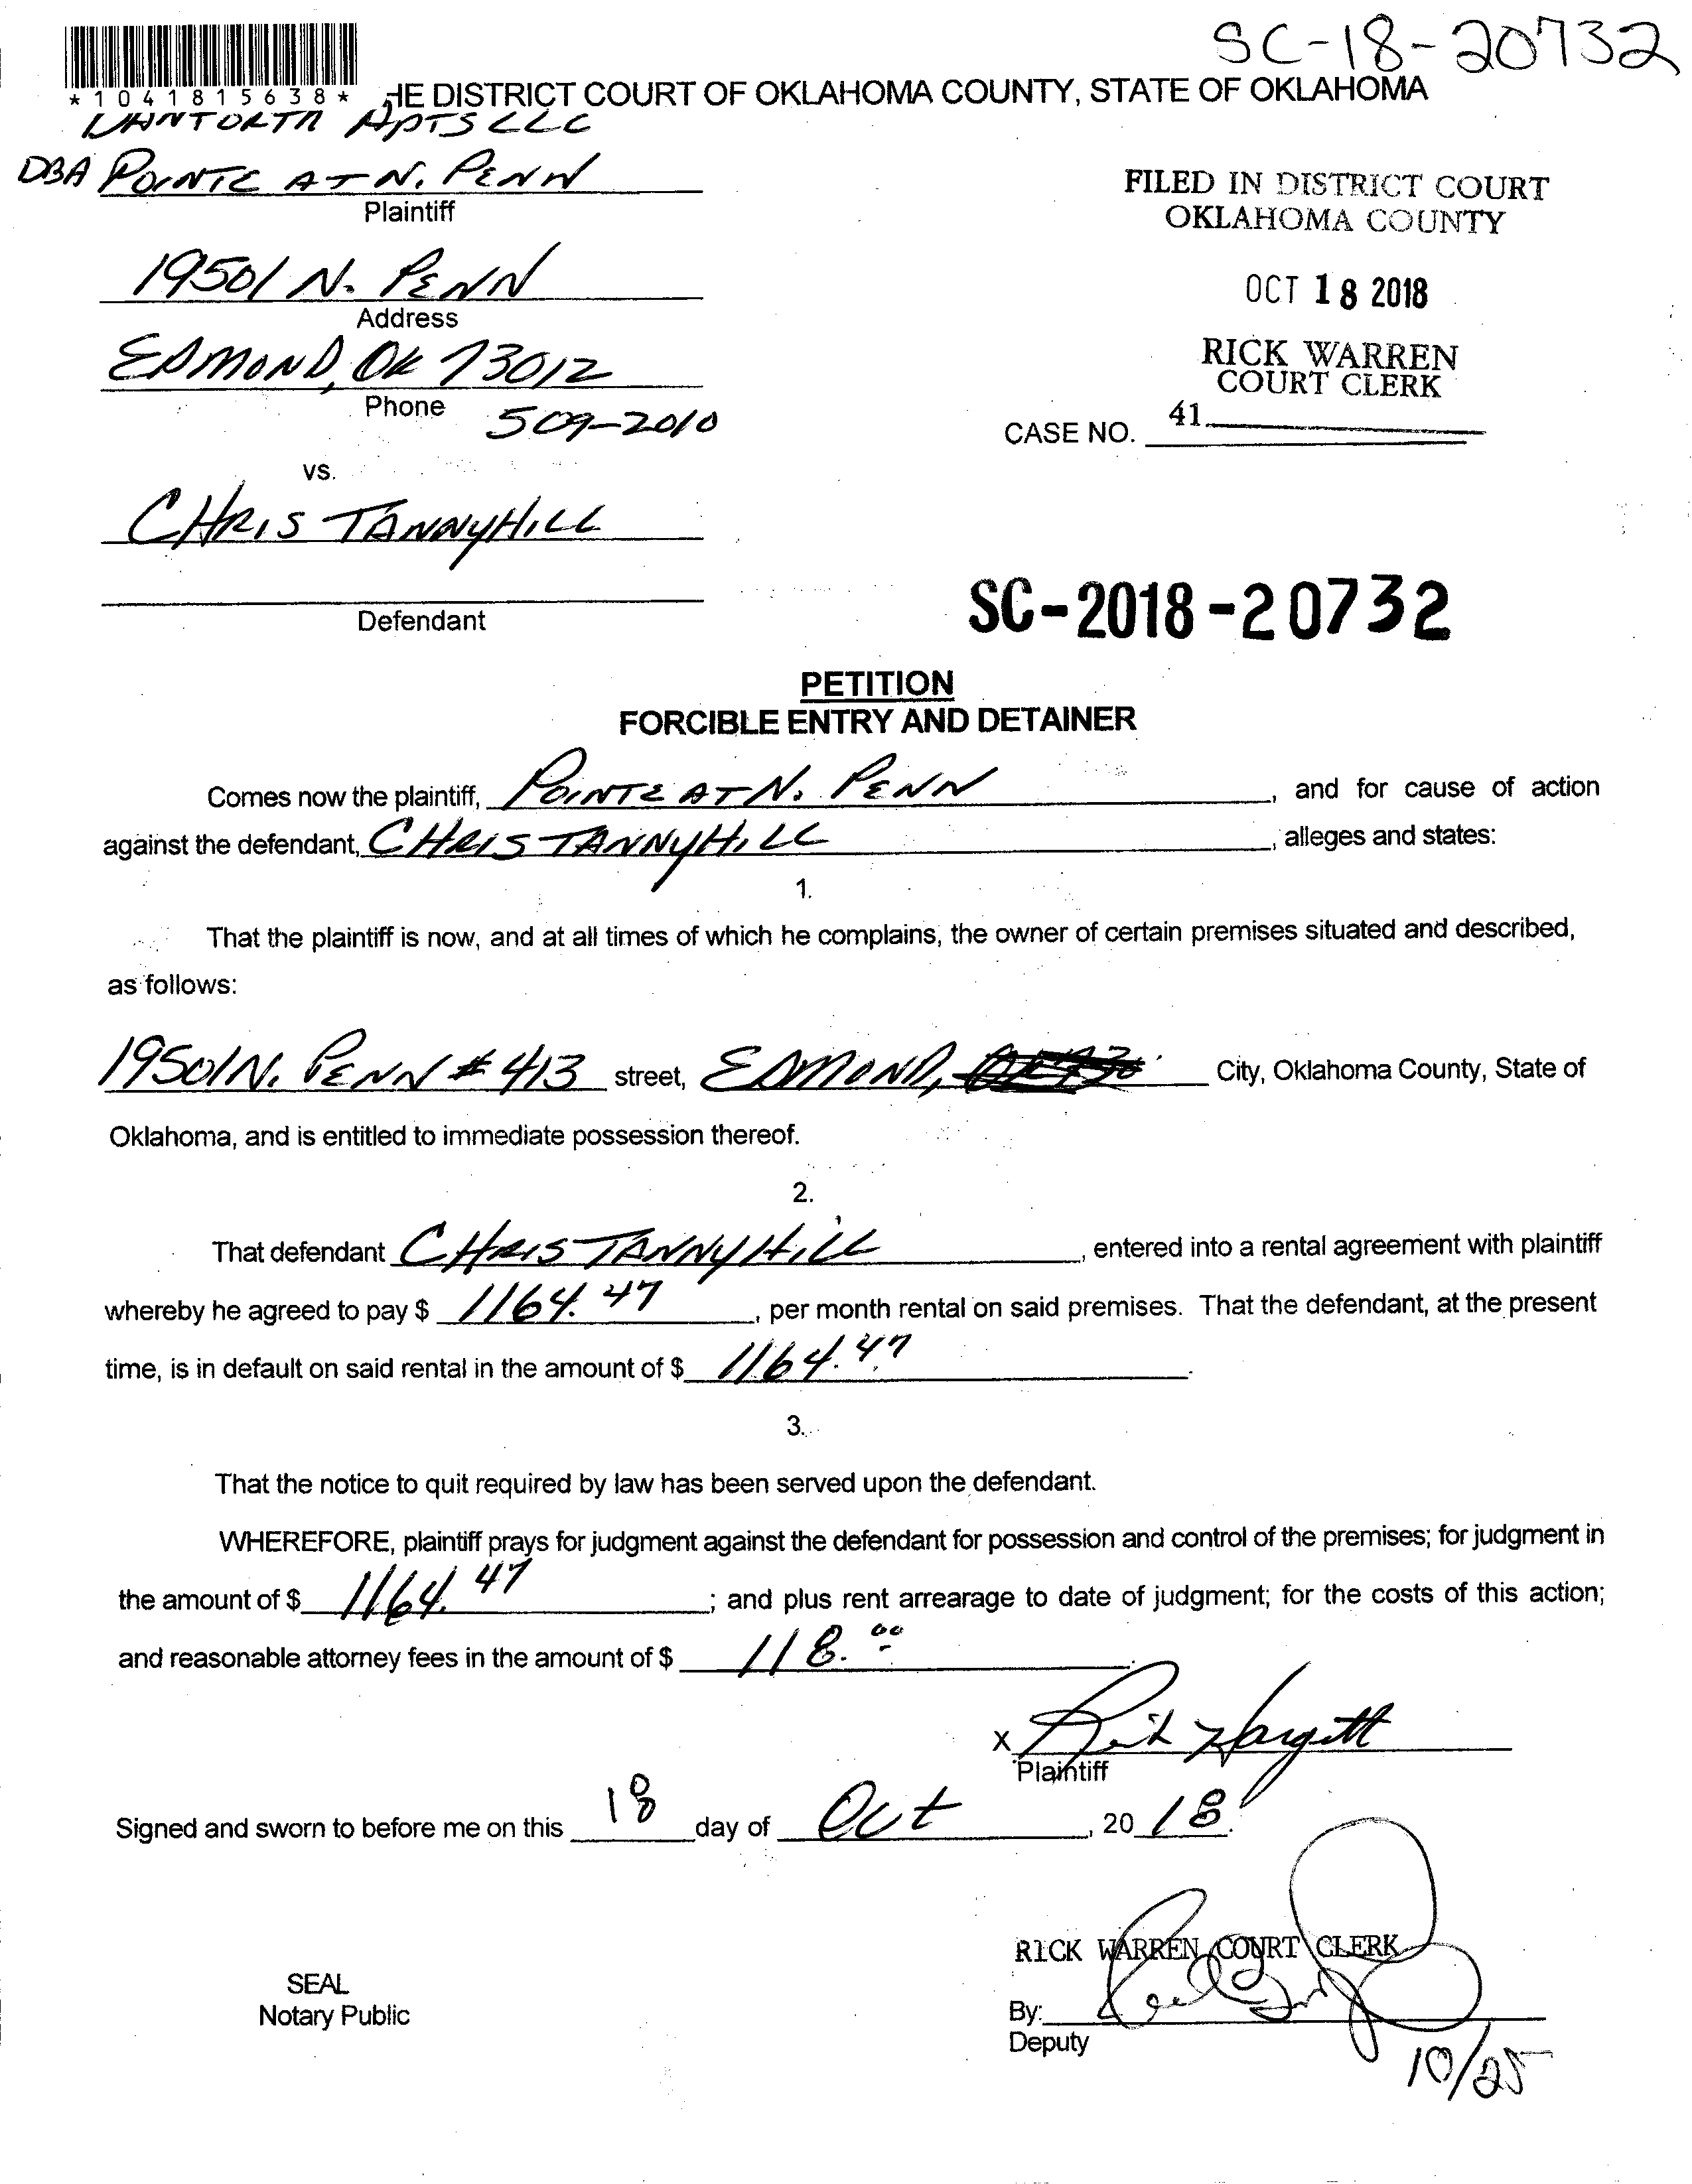 SC-18-20732
*1041815638*
HE DISTRICT COURT OF OKLAHOMA COUNTY, STATE OF OKLAHOMA
APTS LLC
DBA POINTE AT N. PENN
Plaintiff
FILED IN DISTRICT COURT
OKLAHOMA COUNTY
19501 N. PENN
Address
OCT 18 2018
EDMOND, OK 73012
Phone 509-2010
RICK WARREN
COURT CLERK
CASE NO. 41
vs.
CHRIS TANNYHILL
Defendant
SC-2018-20732
PETITION
FORCIBLE ENTRY AND DETAINER
Comes now the plaintiff, POINTE AT N. PENN, and for cause of action
against the defendant, CHRIS TANNYHILL, alleges and states:
1.
That the plaintiff is now, and at all times of which he complains, the owner of certain premises situated and described,
as follows:
19501 N. PENN # 413 street, EDMOND, City, Oklahoma County, State of
Oklahoma, and is entitled to immediate possession thereof.
2.
That defendant CHRIS TANNYHILL, entered into a rental agreement with plaintiff
whereby he agreed to pay $ 1164.47, per month rental on said premises. That the defendant, at the present
time, is in default on said rental in the amount of $ 1164.47.
3.
That the notice to quit required by law has been served upon the defendant.
WHEREFORE, plaintiff prays for judgment against the defendant for possession and control of the premises; for judgment in
the amount of $ 1164.47; and plus rent arrearage to date of judgment; for the costs of this action;
and reasonable attorney fees in the amount of $ 118.00.
X Rick Hargett
Plaintiff
Signed and sworn to before me on this 18 day of Oct, 20 18.
RICK WARREN COURT CLERK
SEAL
Notary Public
By:
Deputy
10/25